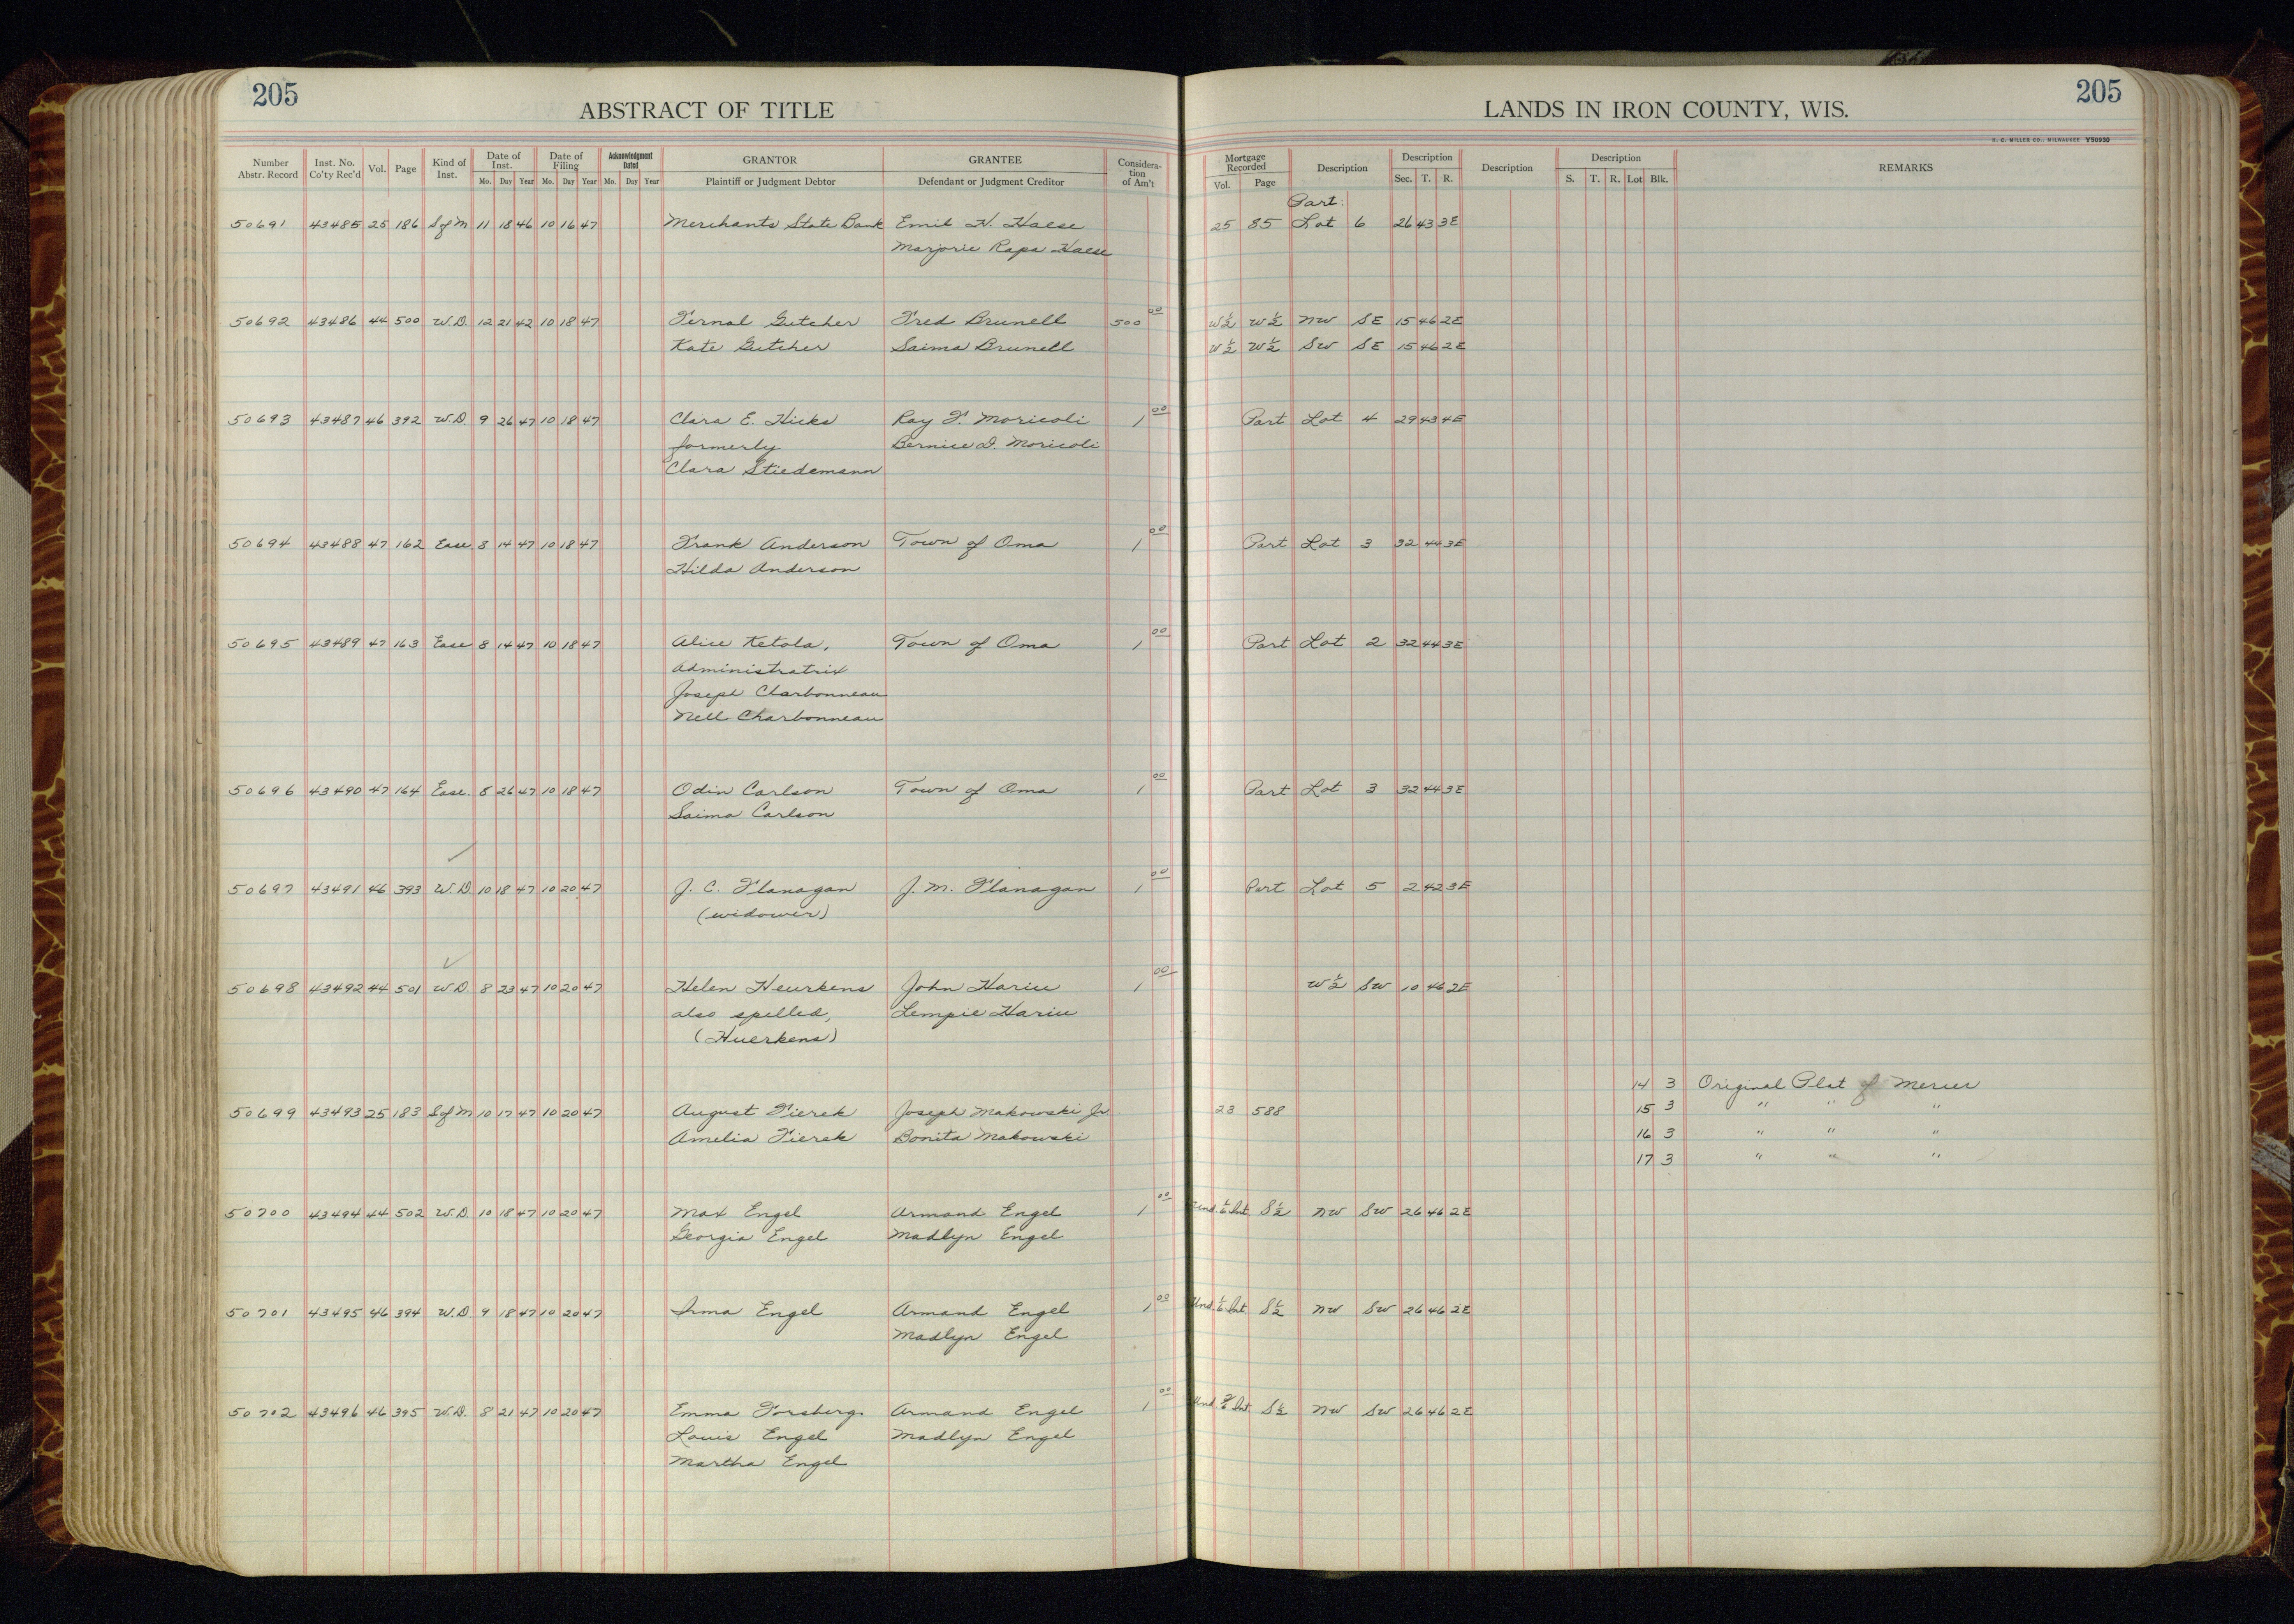 205
ABSTRACT OF TITLE
LANDS IN IRON COUNTY, WIS.
205
H. C. MILLER CO., MILWAUKEE Y50930
Number Abstr. Record | Inst. No. Co'ty Rec'd | Vol. | Page | Kind of Inst. | Date of Inst. Mo. Day Year | Date of Filing Mo. Day Year | Acknowledgment Dated Mo. Day Year | GRANTOR Plaintiff or Judgment Debtor | GRANTEE Defendant or Judgment Creditor | Considera-tion of Am't | Mortgage Recorded Vol. Page | Description | Description Sec. T. R. | Description | Description S. T. R. Lot Blk. | REMARKS
Part:
50691 43485 25 186 S of M 11 18 46 10 16 47 Merchants State Bank Emil H. Haese 25 85 Lot 6 26 43 3E
Marjorie Rapa Haese
50692 43486 44 500 W.D. 12 21 42 10 18 47 Fernal Gutcher Fred Brunell 500 00 W½ W½ NW SE 15 46 2E
Kate Gutcher Saima Brunell W½ W½ SW SE 15 46 2E
50693 43487 46 392 W.D. 9 26 47 10 18 47 Clara E. Hicks Ray F. Moricoli 1 00 Part Lot 4 29 43 4E
formerly Bernice D. Moricoli
Clara Stiedemann
50694 43488 47 162 Ease 8 14 47 10 18 47 Frank Anderson Town of Oma 1 00 Part Lot 3 32 44 3E
Hilda Anderson
50695 43489 47 163 Ease 8 14 47 10 18 47 Alice Ketola, Town of Oma 1 00 Part Lot 2 32 44 3E
Administratrix
Joseph Charbonneau
Nell Charbonneau
50696 43490 47 164 Ease. 8 26 47 10 18 47 Odin Carlson Town of Oma 1 00 Part Lot 3 32 44 3E
Saima Carlson
50697 43491 46 393 W.D. 10 18 47 10 20 47 J. C. Flanagan J. M. Flanagan 1 00 Part Lot 5 2 42 3E
(widower)
50698 43492 44 501 W.D. 8 23 47 10 20 47 Helen Heurkens John Hariu 1 00 W½ SW 10 46 2E
also spelled, Lempie Hariu
(Huerkens)
14 3 Original Plat of Mercer
50699 43493 25 183 S of M 10 17 47 10 20 47 August Fierek Joseph Makowski Jr. 23 588 15 3 " " "
Amelia Fierek Bonita Makowski 16 3 " " "
17 3 " " "
50700 43494 44 502 W.D. 10 18 47 10 20 47 Max Engel Armand Engel 1 00 Und. 1/6 Int. S½ NW SW 26 46 2E
Georgia Engel Madlyn Engel
50701 43495 46 394 W.D. 9 18 47 10 20 47 Irma Engel Armand Engel 1 00 Und. 1/6 Int. S½ NW SW 26 46 2E
Madlyn Engel
50702 43496 46 395 W.D. 8 21 47 10 20 47 Emma Forsberg. Armand Engel 1 00 Und 2/6 Int S½ NW SW 26 46 2E
Louis Engel Madlyn Engel
Martha Engel